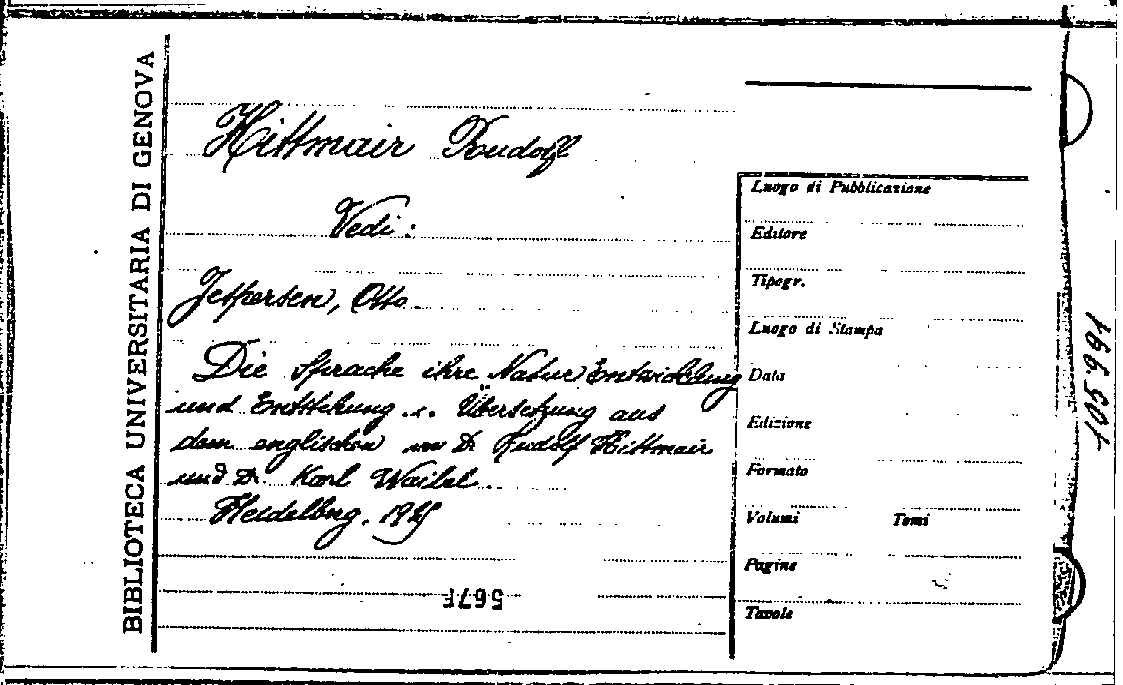 BIBLIOTECA UNIVERSITARIA DI GENOVA
Hittmair Rudolf
Vedi:
Jespersen, Otto
Die Sprache ihre Natur Entwicklung
und Entstehung .. Übersetzung aus
dem englischen von Dr Rudolf Hittmair
und Dr. Karl Waibel
Heidelberg. 1925
567F
Luogo di Pubblicazione
Editore
Tipogr.
Luogo di Stampa
Data
Edizione
Formato
Volumi Tomi
Pagine
Tavole
405994